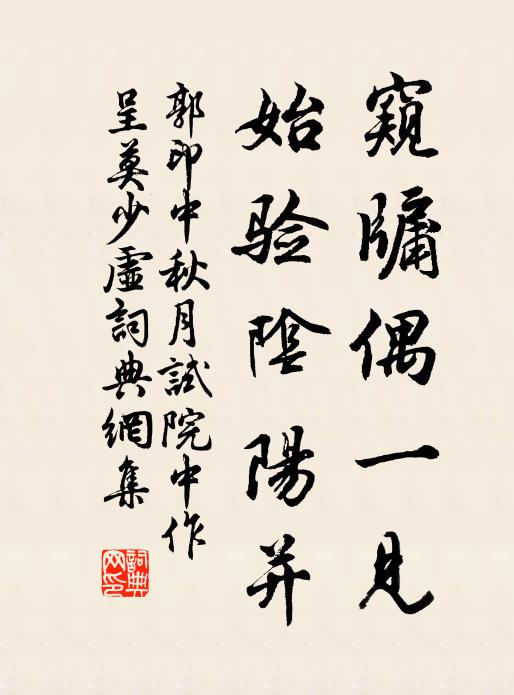 窺牖偶一見
始验陰陽并
郭印中秋月試院中作
呈莫少虛詞典網集
詞典网印